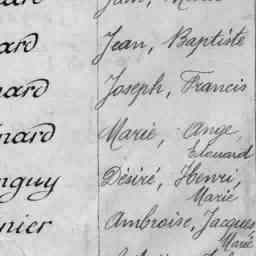 ard Jean, Baptiste
nard Joseph, Francis
nard Marie, Ange,
Edouard
nguy Désiré, Henri,
Marie
nier Ambroise, Jacques
Marie